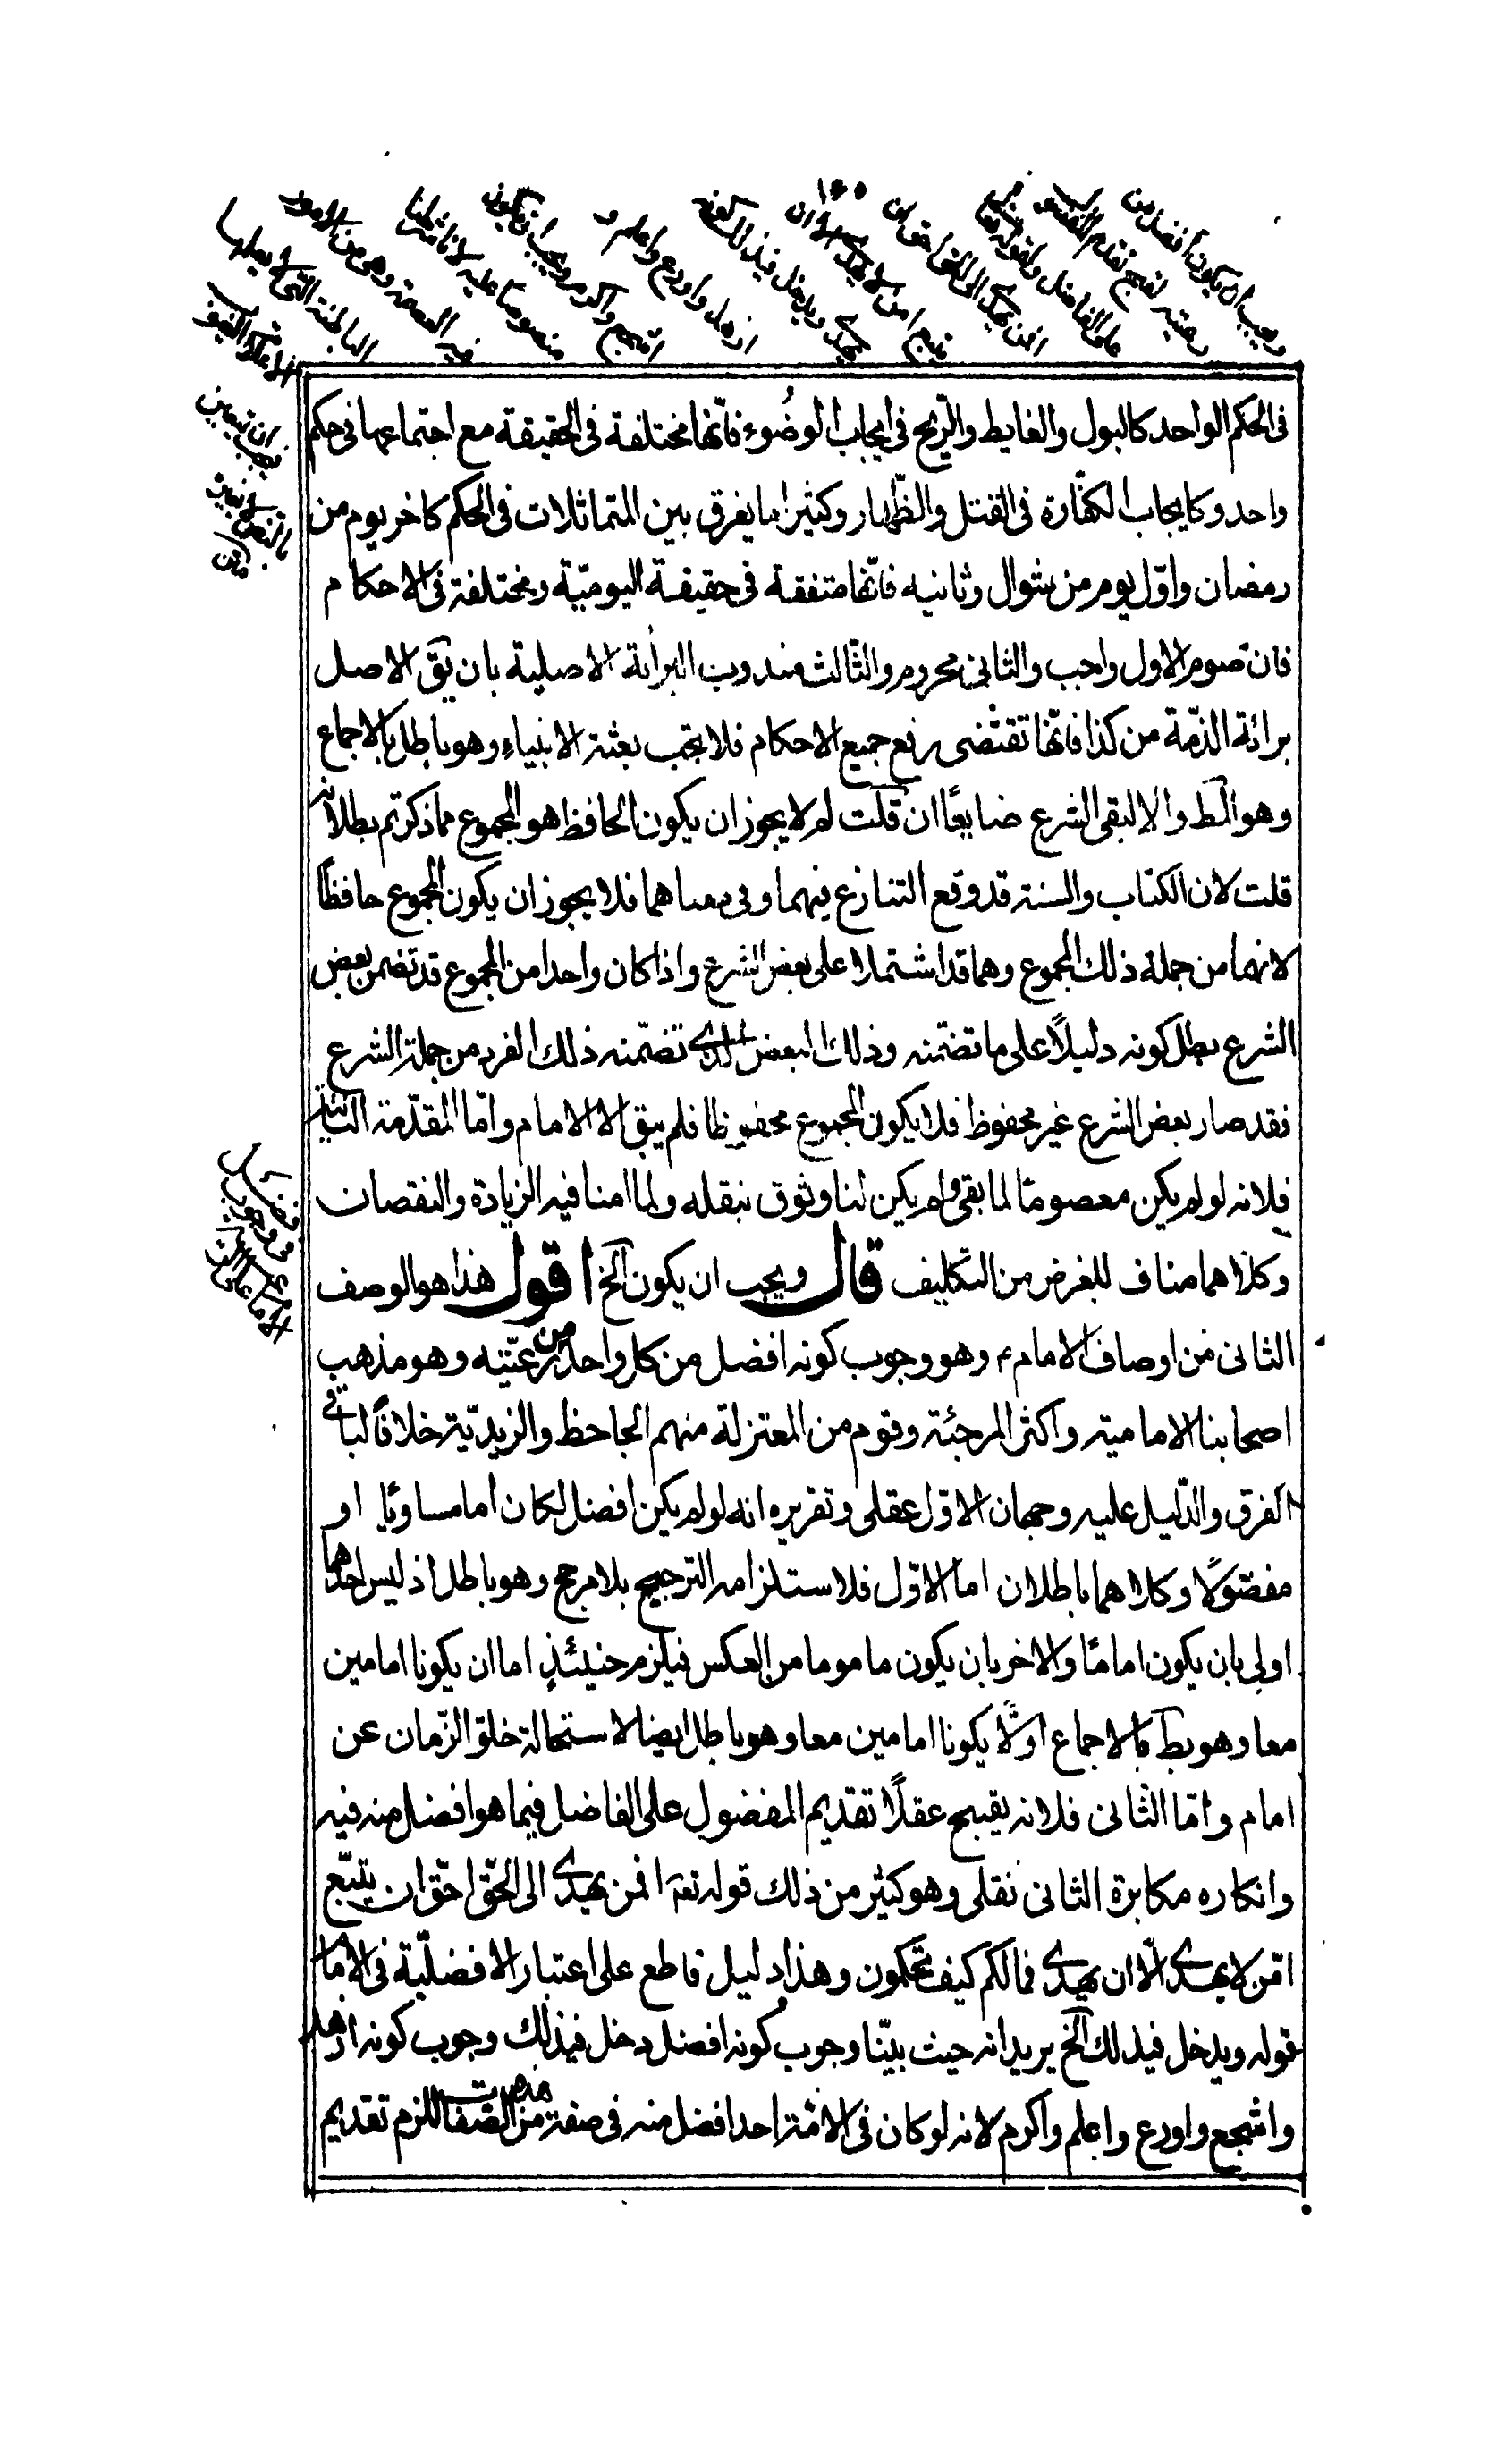 ١٦٥
ويجب ان يكون افضل من
رعيته لقبح تقدم المفضول
على الفاضل ولقوله تعالى
افمن يهدى الى الحق احق ان
يتبع امن لا يهدى الا ان
يهدى ويدخل فى ذلك كونه
ازهد واورع واعلم و
اشجع واكرم ويجب ان يكون
منصوصا عليه لانا شرطنا
فيه العصمة وهى من الامور
الباطنة التى لا يعلمها
الا علام الغيوب
فى الحكم الواحد كالبول والغايط والرّيح فى ايجاب الوضُوء فانّها مختلفة فى الحقيقة مع اجتماعها فى حكم
واحد وكايجاب الكفّارة فى القتل والظّهار وكثيرا ما يفرق بين المتماثلات فى الحكم كاخر يوم من
رمضان واوّل يوم من شوال وثانيه فانّها متفقة فى حقيقة اليوميّة ومختلفة فى الاحكام
فان صوم الاول واجب والثانى محروم والثّالث مندوب البرائة الاصلية بان يق الاصل
برائة الذّمة من كذا فانّها تقتضى رفع جميع الاحكام فلا تجب بعثة الانبياء وهو باطل بالاجماع
وهو المط والا لبقى الشرع ضايعًا ان قلت لم لا يجوز ان يكون الحافظ هو المجموع مما ذكرتم بطلانه
قلت لان الكتاب والسنة قد وقع التنازع فيهما وفى معناهما فلا يجوز ان يكون المجموع حافظًا
لانهما من جملة ذلك المجموع وهما قد اشتملا على بعض الشرع واذا كان واحدا من المجموع قد تضمن بعض
الشرع بطل كونه دليلًا على ما تضمّنه وذلك البعض الذى تضمّنه ذلك الفرد من جملة الشرع
فقد صار بعض الشرع غير محفوظ فلا يكون المجموع محفوظا فلم يبق الا الامام وامّا المقدّمة الثانية
فلانه لو لم يكن معصومًا لما بقى ولم يكن لنا وثوق بنقله ولما امنا فيه الزيادة والنقصان
وكلاهما مناف للغرض من التكليف قال ويجب ان يكون الخ اقول هذا هو الوصف
الثانى من اوصاف الامام وهو وجوب كونه افضل من كل واحد من رعيّته وهو مذهب
اصحابنا الامامية واكثر المرجئة وقوم من المعتزلة منهم الجاحظ والزيديّة خلافًا لباقى
الفرق والدّليل عليه وجهان الاوّل عقلى وتقريره انه لو لم يكن افضل لكان اما مساويًا او
مفضولًا وكلاهما باطلان اما الاوّل فلاستلزامه الترجيح بلا مرجح وهو باطل اذ ليس احدهما
اولى بان يكون امامًا والاخر بان يكون ماموما من العكس فيلزم حينئذٍ اما ان يكونا امامين
معا وهو بط بالاجماع اولًا يكونا امامين معا وهو باطل ايضا لاستحالة خلوّ الزّمان عن
امام وامّا الثانى فلانه يقبح عقلًا تقديم المفضول على الفاضل فيما هو افضل منه فيه
وانكاره مكابرة الثانى نقلى وهو كثير من ذلك قوله تعه افمن يهدى الى الحقّ احقّ ان يتبّع
امّن لا يهدى الّا ان يهدى فمالكم كيف تحكمون وهذا دليل قاطع على اعتبار الافضليّة فى الاما
قوله ويدخل فيذلك الخ يريد انه حيث بيّنا وجوب كونه افضل دخل فيذلك وجوب كونه ازهد
واشجع واورع واعلم واكرم لانه لو كان فى الامّة احد افضل منه فى صفة من الصّفات للزم تقديم